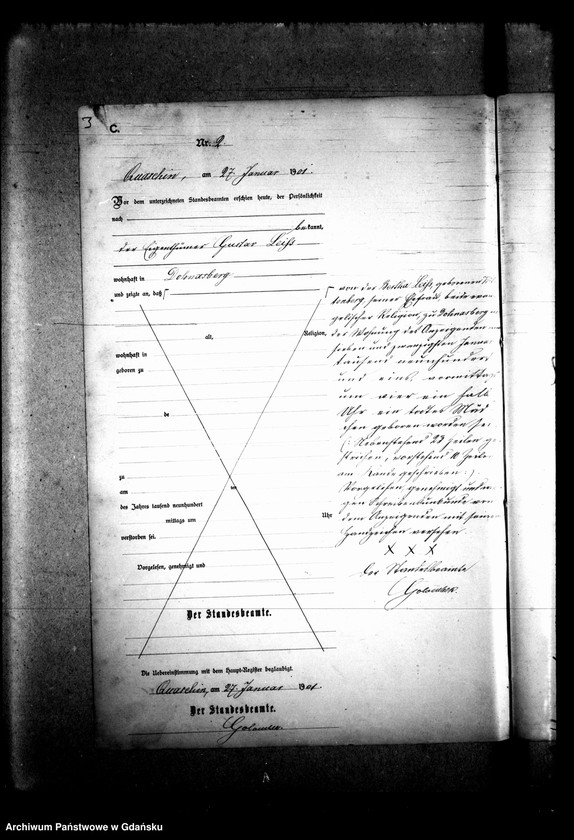 3
C.
Nr. 2.
Quaschin, am 27 Januar 1901.
Vor dem unterzeichneten Standesbeamten erschien heute, der Persönlichkeit
nach
bekannt,
der Eigenthümer Gustav
wohnhaft in Dohnasberg
und zeigte an, daß
alt, Religion,
wohnhaft in
geboren zu
de
zu
am
des Jahres tausend neunhundert
mittags um Uhr
verstorben sei.
Vorgelesen, genehmigt und
Der Standesbeamte.
von der geborenen
seiner Ehefrau, beide evan
gelischer Religion, zu Dohnasberg in
der Wohnung des Anzeigenden am
sieben und zwanzigsten Janua
tausend neunhundert
und eins vormitta
um vier ein halb
Uhr ein todtes Mäd
chen geboren worden sei
(: Nebenstehend 28 Zeilen ge
strichen, vorstehend 11 Zeilen
am Rande geschrieben :)
Vorgelesen, genehmigt und
von
dem Anzeigenden mit seinem
Handzeichen versehen.
x x x
Der Standesbeamte
Die Uebereinstimmung mit dem Haupt-Register beglaubigt.
Quaschin, am 27 Januar 1901
Der Standesbeamte.
A
Archiwum Państwowe w Gdańsku